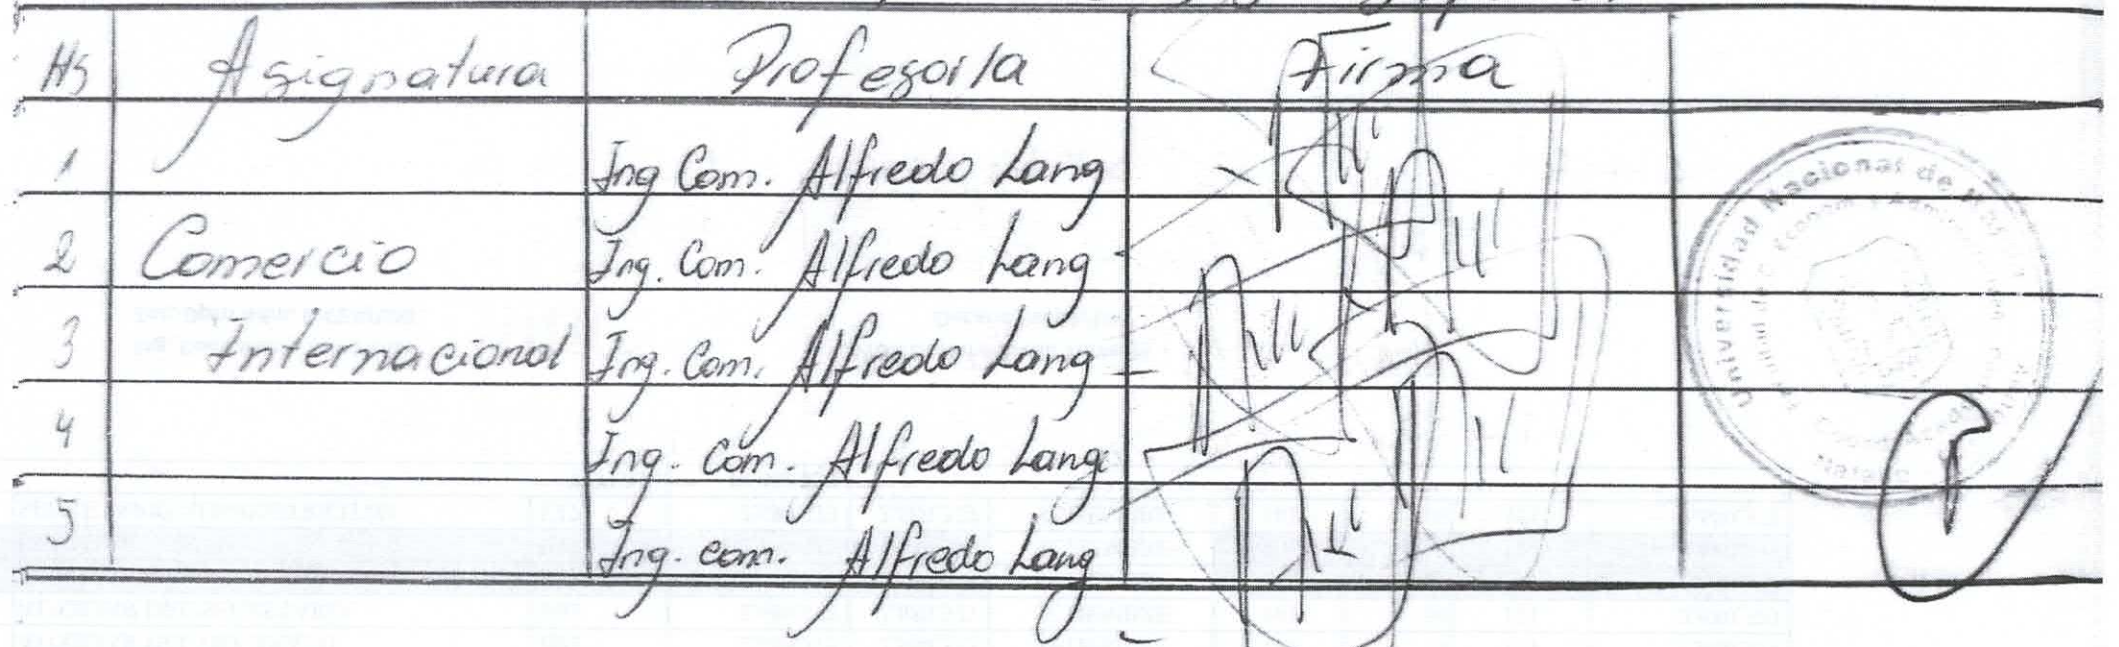 Hs Asignatura Profesor/a Firma
1 Ing Com. Alfredo Lang
2 Comercio Ing. Com. Alfredo Lang
3 Internacional Ing. Com. Alfredo Lang
4 Ing. Com. Alfredo Lang
5 Ing. com. Alfredo Lang
Universidad Nacional de